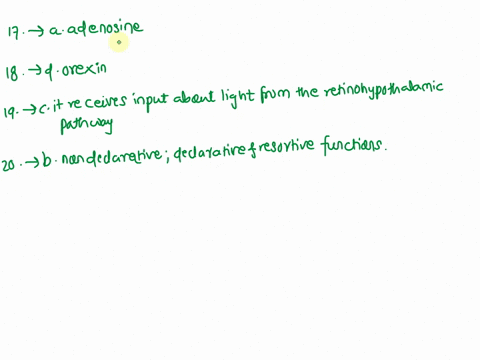 17. → a. adenosine
18. → d. orexin
19. → c. it receives input about light from the retinohypothalamic
pathway
20. → b. nondeclarative; declarative & resortive functions.